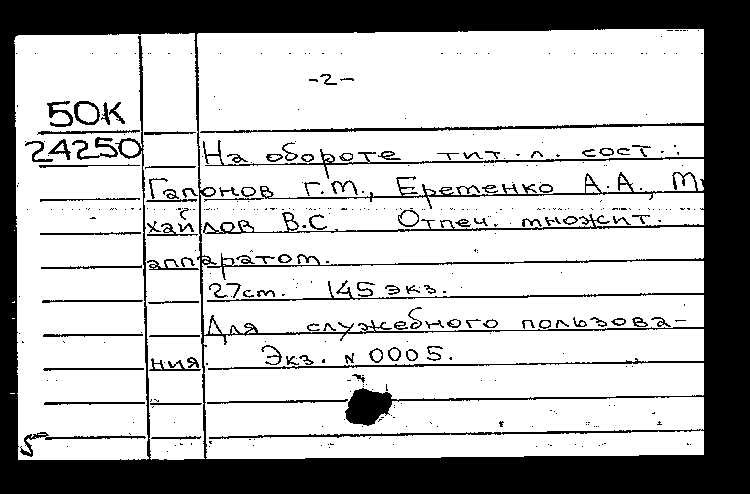 -2-
50К
24250
На обороте тит. л. сост.:
Гапонов Г.М., Еременко А.А., Ми
хайлов В.С. Отпеч. множит.
аппаратом.
27см. 145 экз.
Для служебного пользова-
ния. Экз. N 0005.
5